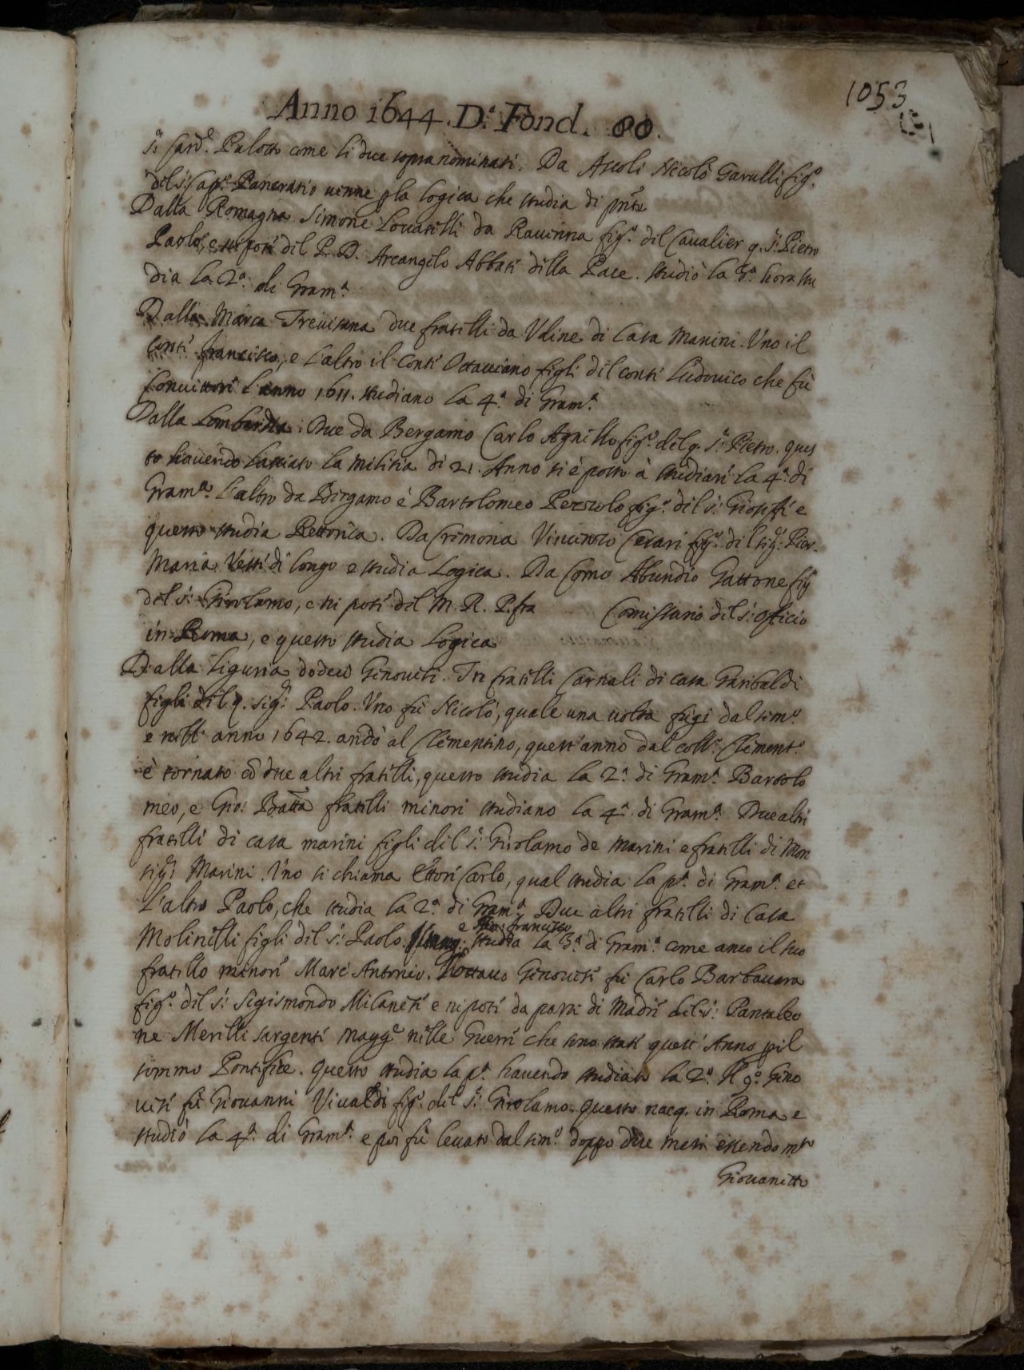 1053
Anno 1644. D.ª Fond. 80.
S.r Card.e Palotto come li due sopranominati. Da Ascoli Nicolò Garulli fig.o
del s.r Cap.o Pancratio uenne p la logica che studia di pnte
Dalla Romagna Simone Louatelli da Rauenna fig.o del Caualier q. S.r Pietro
Paolo, e nepote del P. D. Arcangelo Abbate della Pace. studiò la 3.ª hora stu
dia la 2.ª di Gram.ª
Dalla Marca Treuisana due fratelli da Vdine di Casa Manini. Vno il
Conte francisco, e l'altro il Conte Ottauiano figli del conte Ludouico che fù
Conuittore l'anno 1611. studiano la 4.ª di Gram.ª
Dalla Lombardia: Due da Bergamo Carlo Agnello fig.o del q. S.r Pietro. Ques
to hauendo lassiato la militia di 21. Anno si è posto à studiare la 4.ª di
Gram.ª L'altro da Bergamo è Bartolomeo fig.o del s.r Gioseffe e
questo studia Rettorica. Da Cremona Vincenzo Cesari fig.o del sig.r Pier
Maria Veste di longo e studia Logica. Da Como Abundio Gattone fig.o
del s.r Girolamo, e nipote del M. R. P. fra Comissario del s. Officio
in Roma, e questo studia Logica
Dalla Liguria dodeci Genouesi. Tre fratelli Carnali di casa Garibaldi
figli del q. sig.r Paolo. Vno fù Nicolò, quale una uolta fugi dal sem.o
e anno 1642. andò al Clementino, quest'anno dal coll.o Clement.o
è tornato cõ due altri fratelli, questo studia la 2.ª di Gram.ª Bartolo
meo, e Gio: Batta fratelli minori studiano la 4.ª di Gram.ª Due altri
fratelli di casa marini figli del s.r Girolamo de marini e fratelli di Mon
sig.r Marini. Vno si chiama Ettore Carlo, qual studia la p.ª di Gram.ª et
L'altro Paolo, che studia la 2.ª di Gram.ª Due altri fratelli di Casa
Molinelli figli del s.r Paolo. e Gio: francisco studia la 3.ª di Gram.ª come anco il suo
fratello minore Marc'Antonio. L'ottauo Genouese fù Carlo Barbauara
fig.o del s.r Sigismondo Milanese e nipote da parte di Madre del s.r Pantaleo
ne Merelli sargente magg.e nelle Guerre che sono state quest'Anno pil
sommo Pontefice. Questo studia la p.ª hauendo studiato la 2.ª Il 9.o Geno
uese fù Giouanni Viualdi fig.o del s.r Girolamo. Questo nacq. in Roma e
studiò la 4.ª di Gram.ª e poi fù leuato dal sem.o doppo due mesi essendo m.to
Giouanetto